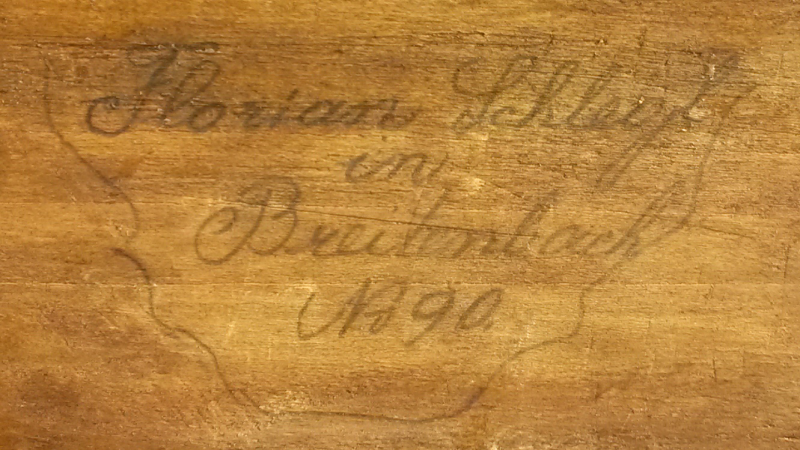 Florian
in
Breitenbach
No 90